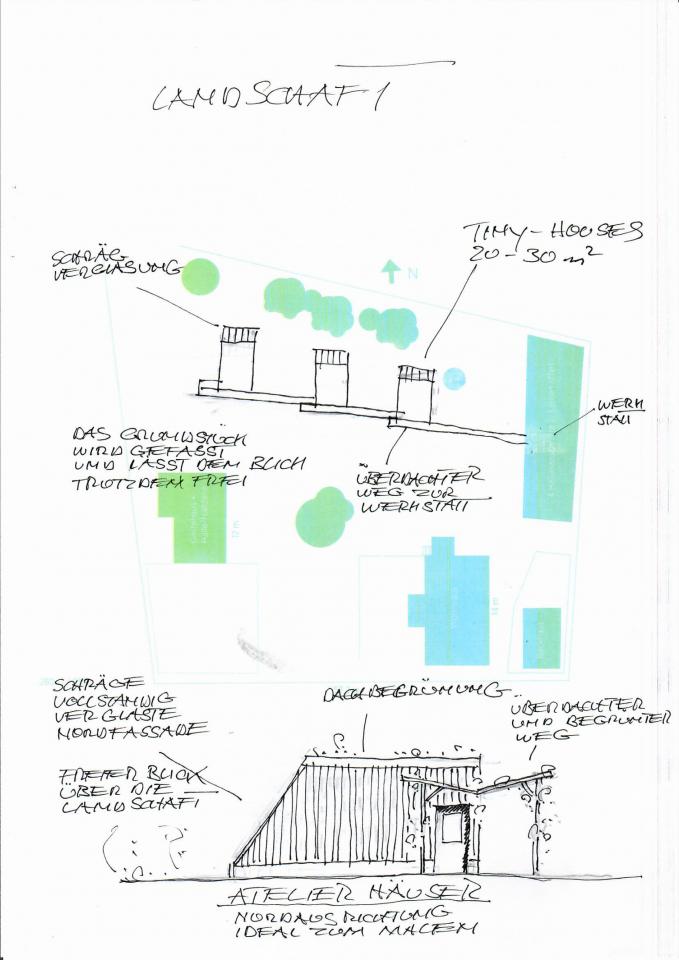 LANDSCHAFT
TINY-HOUSES
20-30 m²
SCHRÄG
VERGLASUNG
N
WERK
STATT
DAS GRUNDSTÜCK
WIRD GEFASST
UND LÄSST DEN BLICK
TROTZDEM FREI
ÜBERDACHTER
WEG ZUR
WERKSTATT
12 m
14 m
SCHRÄGE
VOLLSTÄNDIG
VERGLASTE
NORDFASSADE
DACHBEGRÜNUNG
ÜBERDACHTER
UND BEGRÜNTER
WEG
FREIER BLICK
ÜBER DIE
LANDSCHAFT
ATELIER HÄUSER
NORDAUSRICHTUNG
IDEAL ZUM MALEN